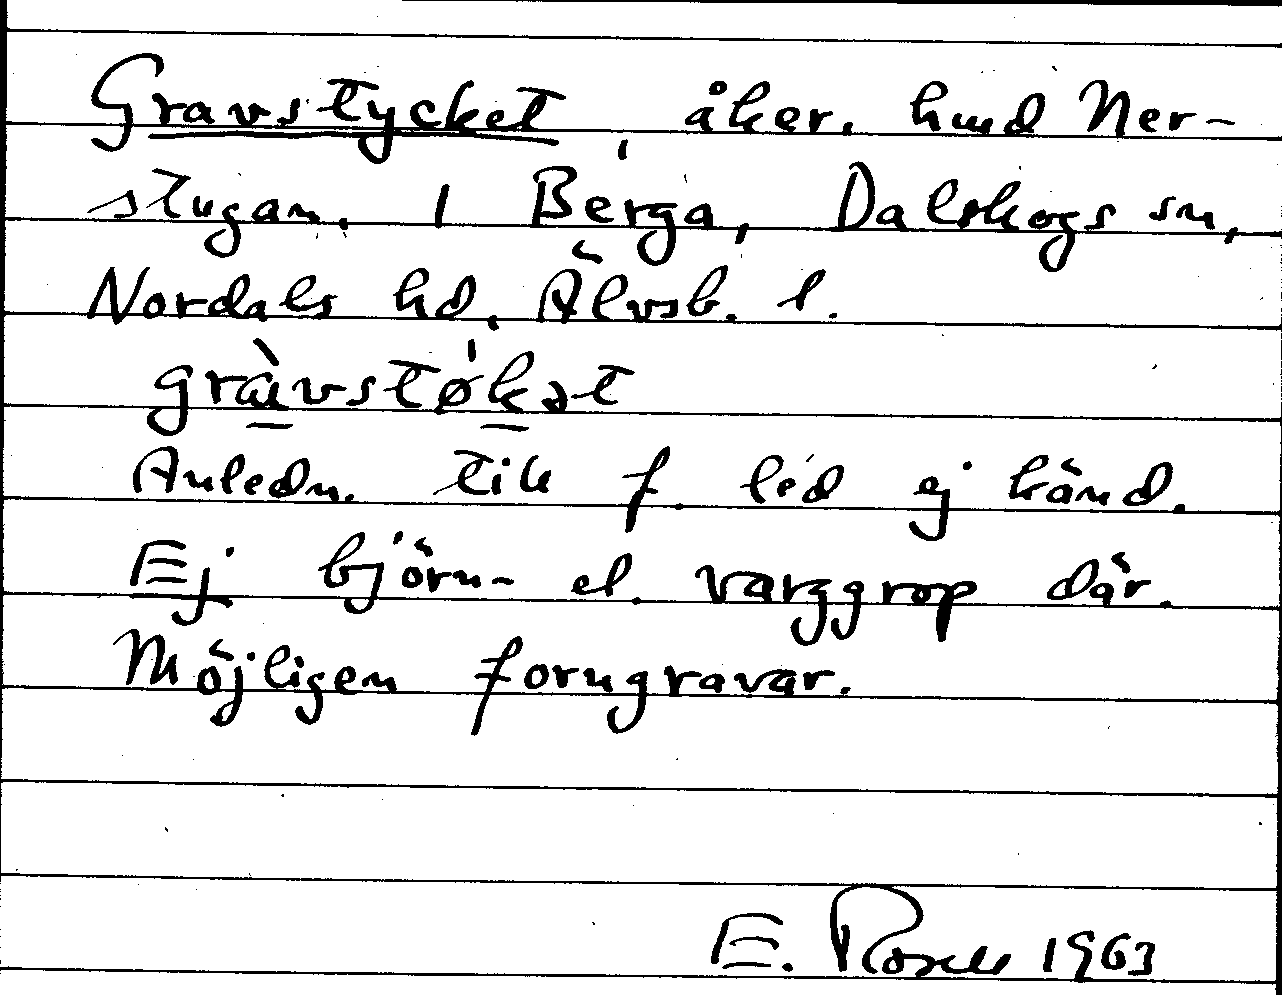 Gravstycket, åker. hmd Ner-
stugan. 1 Berga, Dalskogs sn,
Nordals hd, Älvsb. l.
gràvstø̀kət
Anledn. till f. led ej känd.
Ej björn- el. varggrop där.
Möjligen forngravar.
E. Rosell 1963